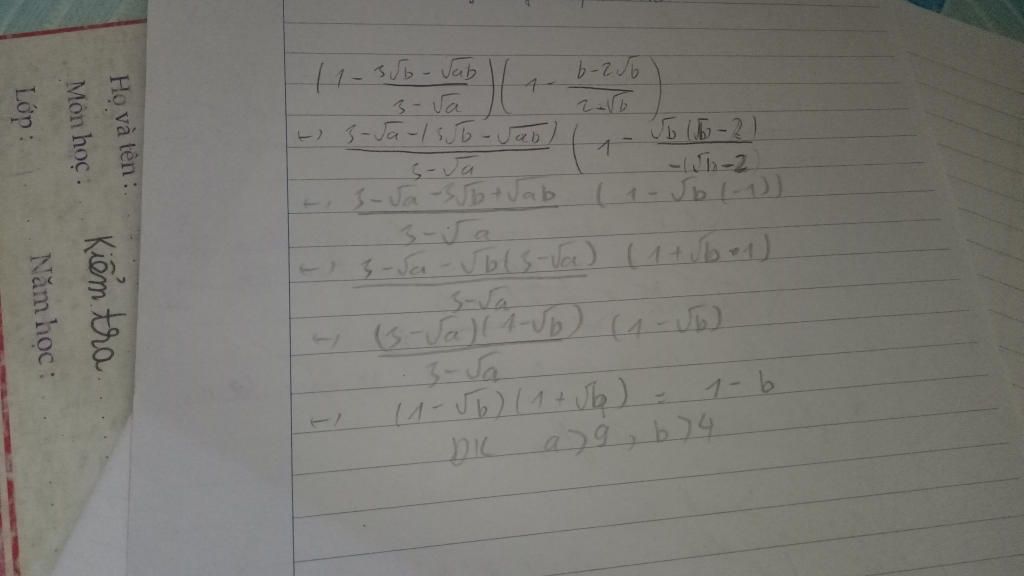 Họ và tên:
Môn học: Kiểm tra
Lớp: Năm học:
(1 - (3√b - √ab)/(3 - √a))(1 - (b - 2√b)/(2 - √b))
↔ (3 - √a - (3√b - √ab))/(3 - √a) (1 - √b(√b - 2)/(-(√b - 2)
↔ (3 - √a - 3√b + √ab)/(3 - √a) (1 - √b(-1))
↔ (3 - √a - √b(3 - √a))/(3 - √a) (1 + √b • 1)
↔ ((3 - √a)(1 - √b))/(3 - √a) (1 - √b)
↔ (1 - √b)(1 + √b) = 1 - b
ĐK a > 9, b > 4